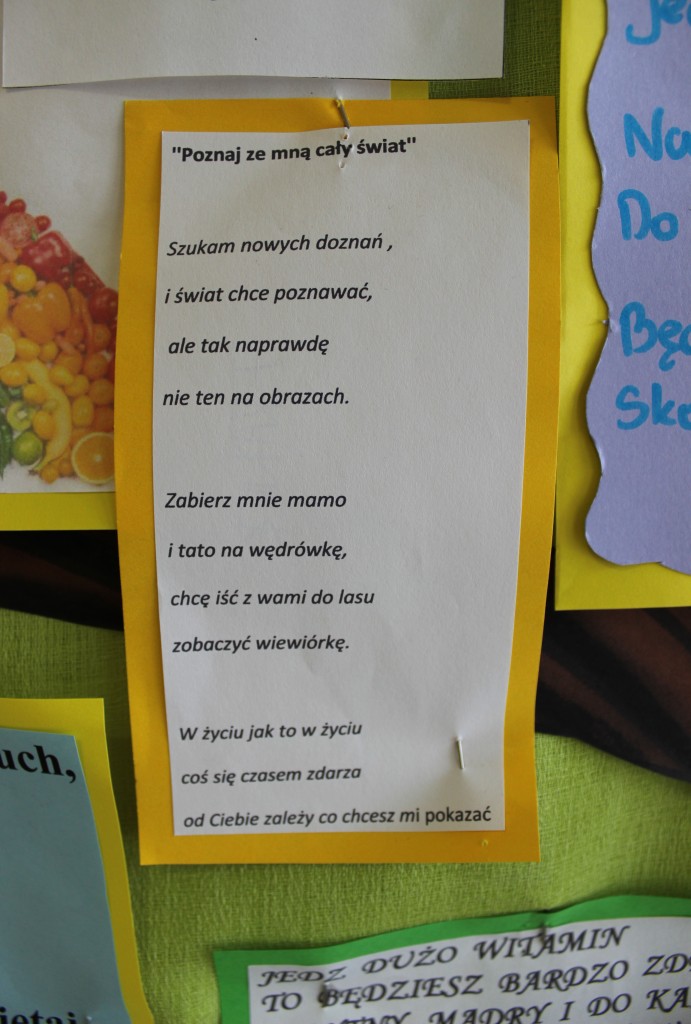 "Poznaj ze mną cały świat"
Szukam nowych doznań ,
i świat chce poznawać,
ale tak naprawdę
nie ten na obrazach.
Zabierz mnie mamo
i tato na wędrówkę,
chcę iść z wami do lasu
zobaczyć wiewiórkę.
W życiu jak to w życiu
coś się czasem zdarza
od Ciebie zależy co chcesz mi pokazać
Na
Do
uch,
JEDZ DUŻO WITAMIN
TO BĘDZIESZ BARDZO
MĄDRY I DO